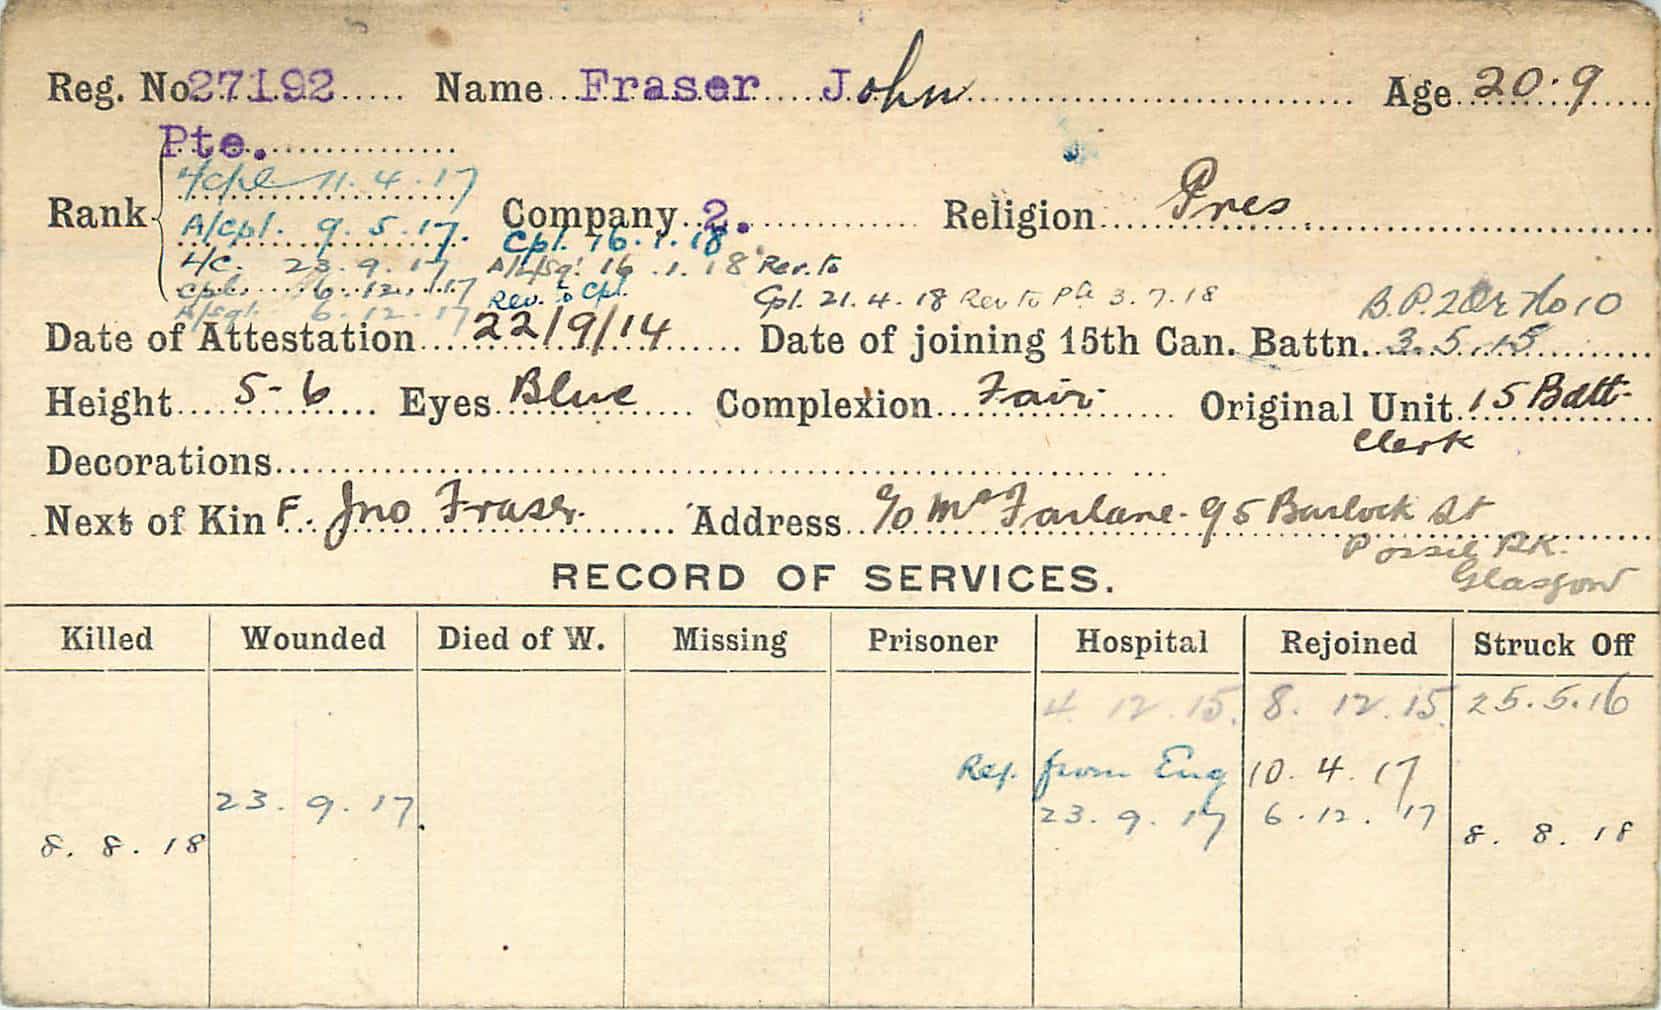 Reg. No 27192 Name Fraser John Age 20.9
Pte.
L/Cpl 11.4.17
Rank A/Cpl. 9.5.17. Company 2. Religion Pres
L/C. 23.9.17 Cpl. 16.1.18
Cpl. 6.12.17 A/L/Sgt 16.1.18 Rev. to
A/Sgt. 6.12.17 Rev. to Cpl. Cpl. 21.4.18 Rev to Pte 3.7.18 B.P. 2 Or No 10
Date of Attestation 22/9/14 Date of joining 15th Can. Battn. 3.5.15
Height 5-6 Eyes Blue Complexion Fair Original Unit 15 Batt-
Clerk
Decorations
Next of Kin F. Jno Fraser. Address c/o McFarlane. 95 Barlock St
Possil Pk.
Glasgow
RECORD OF SERVICES.
Killed Wounded Died of W. Missing Prisoner Hospital Rejoined Struck Off
4 12 15. 8. 12. 15. 25.5.16
Rej. from Eng 10.4.17
23.9.17 23.9.17 6.12.17
8.8.18 8.8.18